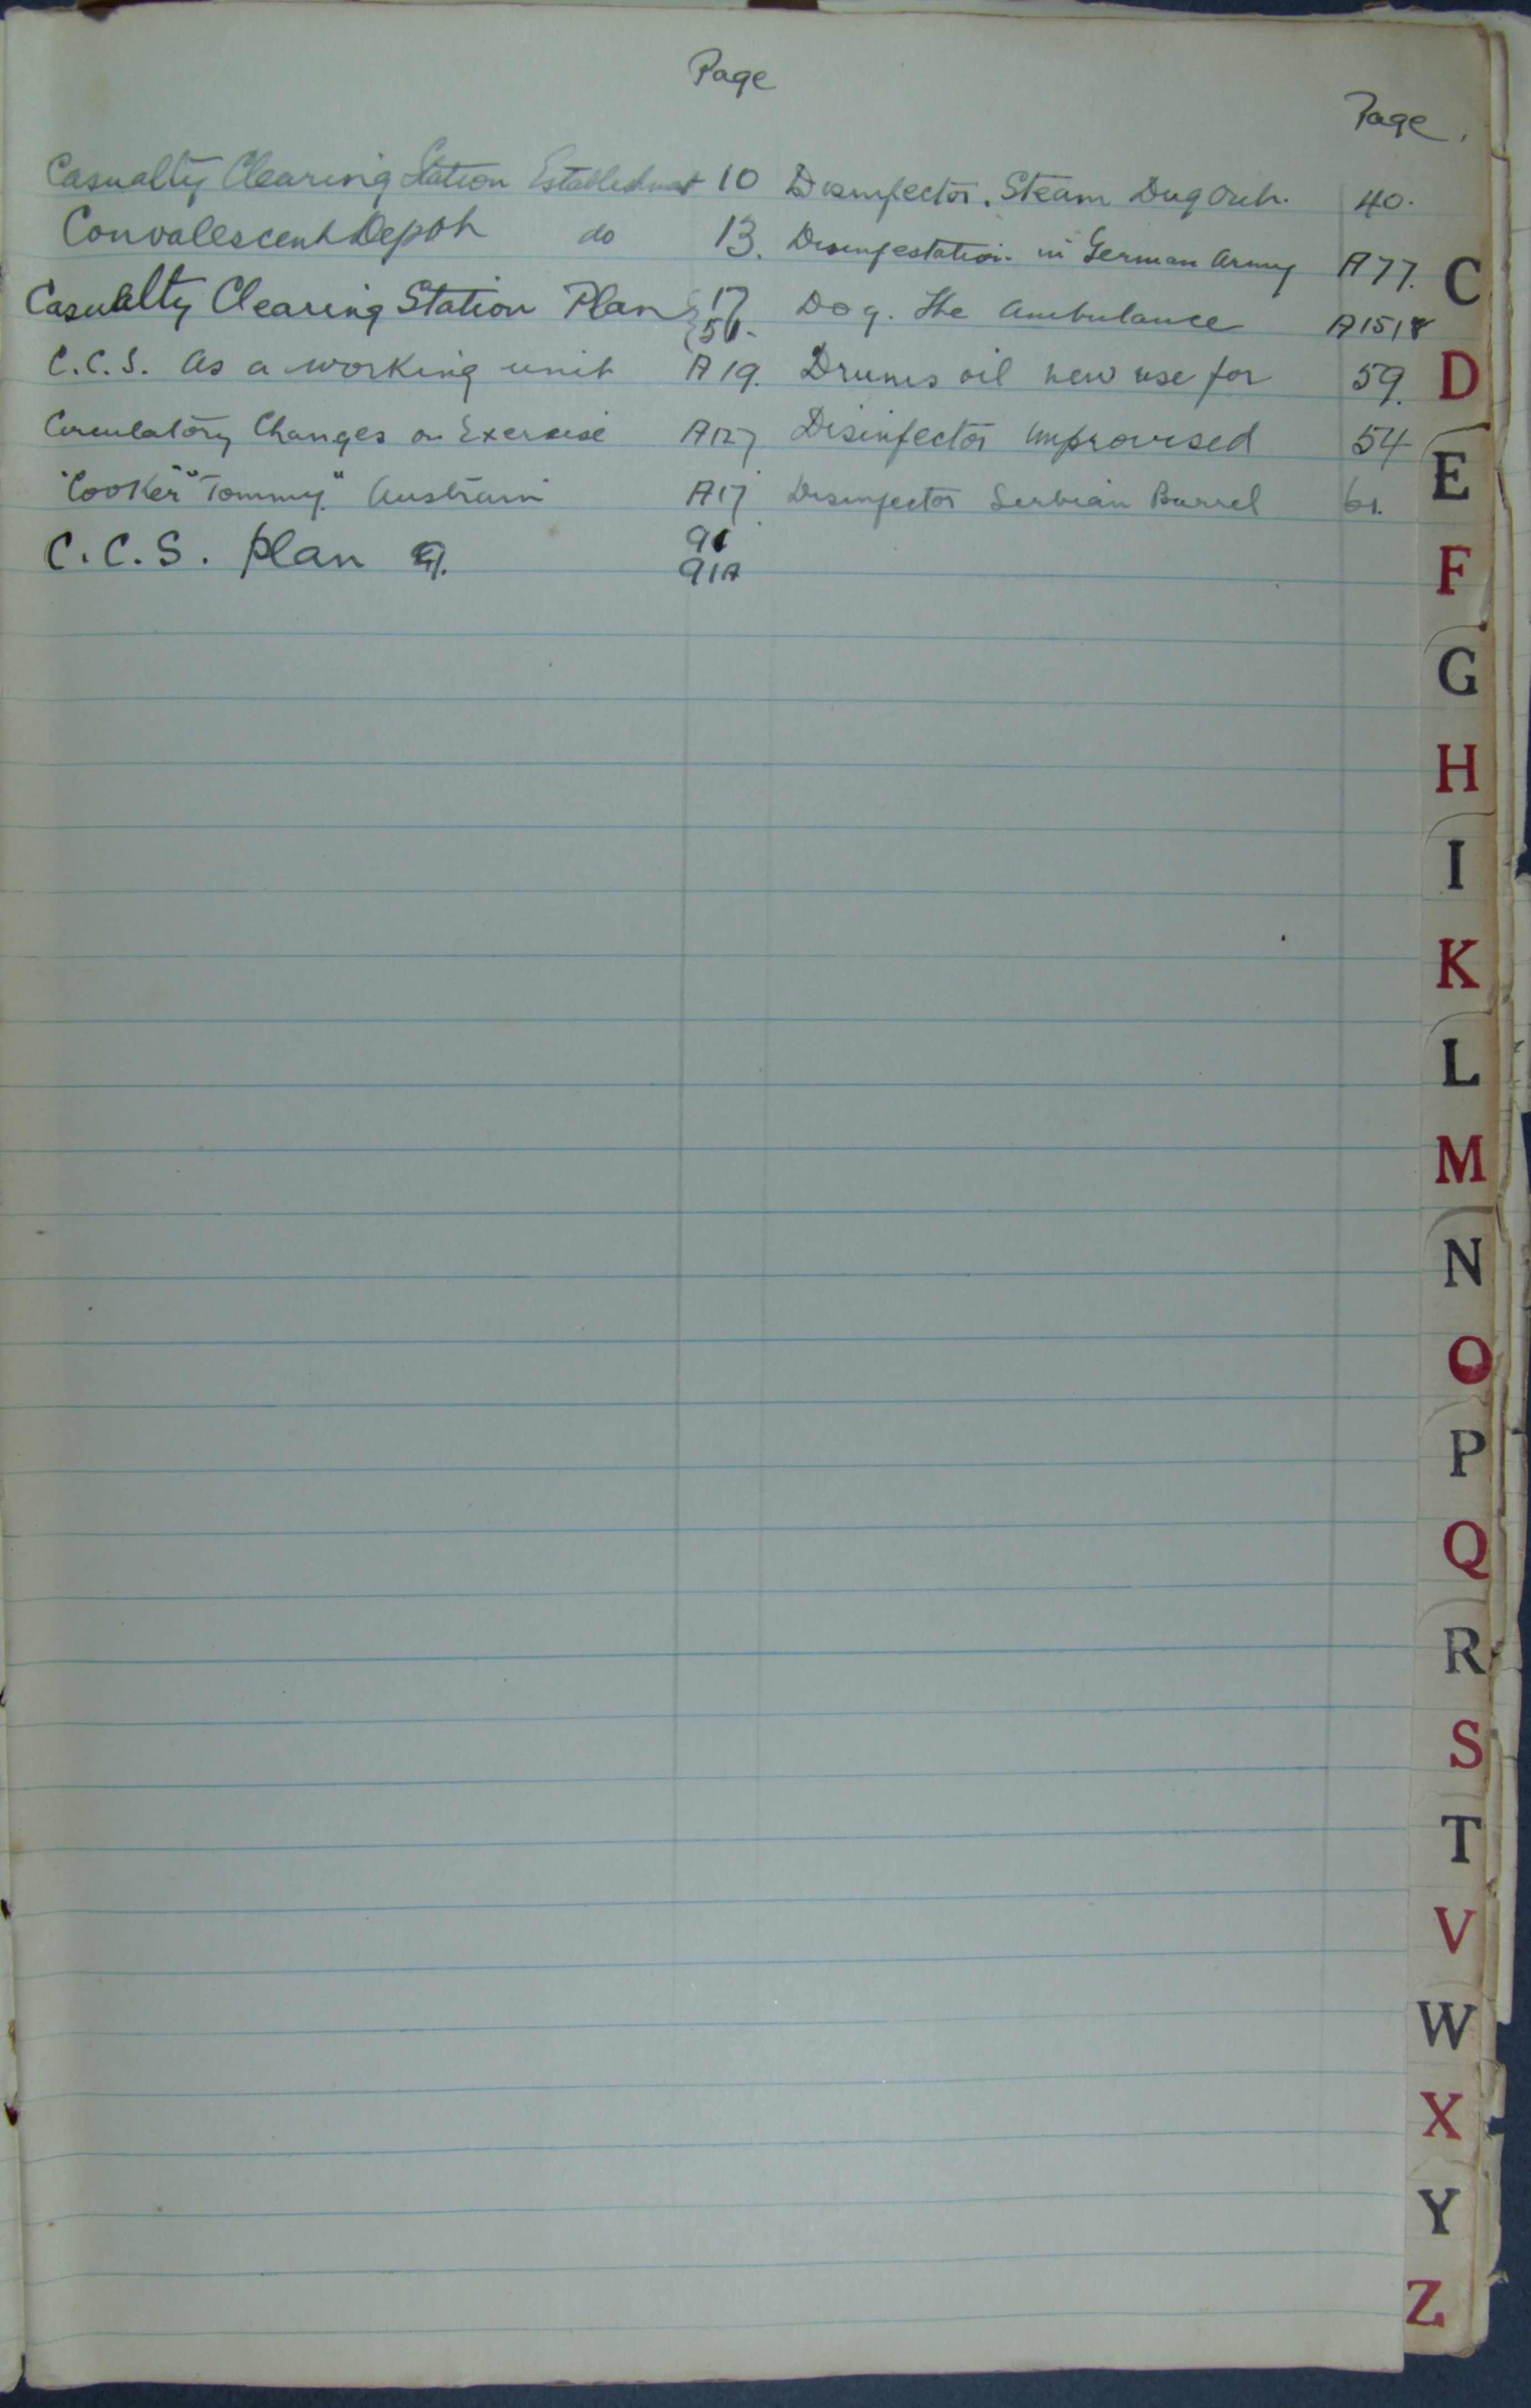 Page
Casualty Clearing Station Establishment 10
Convalescent Depot do 13.
Casualty Clearing Station Plan { 17
{ 51.
C.C.S. as a working unit A19.
Circulatory Changes on Exercise A127
"Cooker" "Tommy." Austrian A17
C.C.S. Plan
91
91A
Page.
Disinfector. Steam Dug Out. 40.
Disinfestation in German Army A77.
Dog. The Ambulance
Drums oil new use for 59.
Disinfector improvised 54
Disinfector Serbian Barrel 61.
C
D
E
F
G
H
I
K
L
M
N
O
P
Q
R
S
T
V
W
X
Y
Z